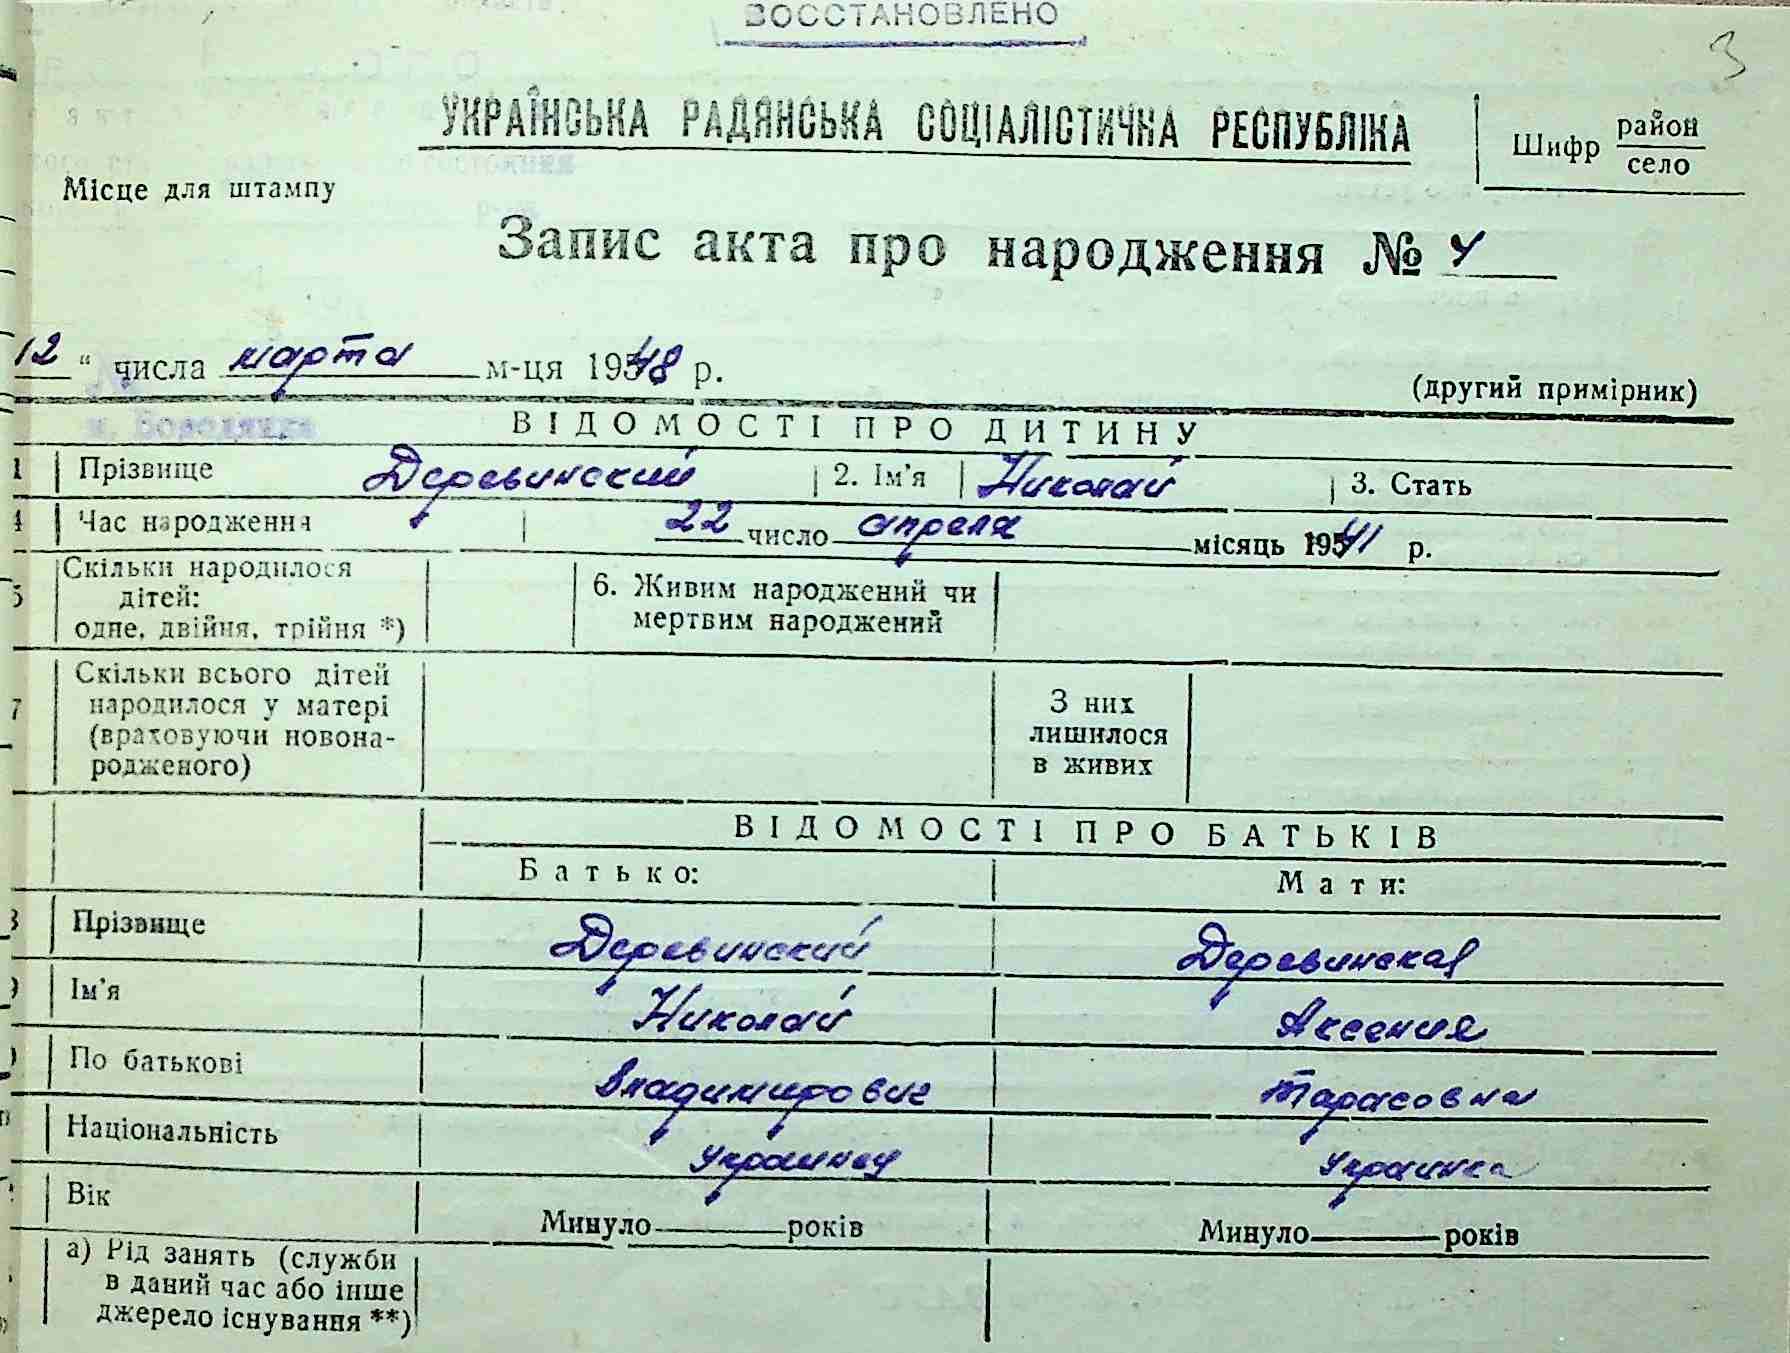 ВОССТАНОВЛЕНО
3
УКРАЇНСЬКА РАДЯНСЬКА СОЦІАЛІСТИЧНА РЕСПУБЛІКА
Шифр район
село
Місце для штампу
Запис акта про народження № 4
12 “ числа марта м-ця 1948 р.
(другий примірник)
м. Бородянка
ВІДОМОСТІ ПРО ДИТИНУ
1 Прізвище Деревинский 2. Ім'я Николай 3. Стать
4 Час народження 22 число апреля місяць 1941 р.
5 Скільки народилося дітей: одне, двійня, трійня *)
6. Живим народжений чи мертвим народжений
7 Скільки всього дітей народилося у матері (враховуючи новонародженого)
З них лишилося в живих
ВІДОМОСТІ ПРО БАТЬКІВ
Батько: Мати:
8 Прізвище Деревинский Деревинская
9 Ім'я Николай Аксения
По батькові Владимирович Тарасовна
Національність украинец украинка
Вік Минуло років Минуло років
а) Рід занять (служби
в даний час або інше
джерело існування **)